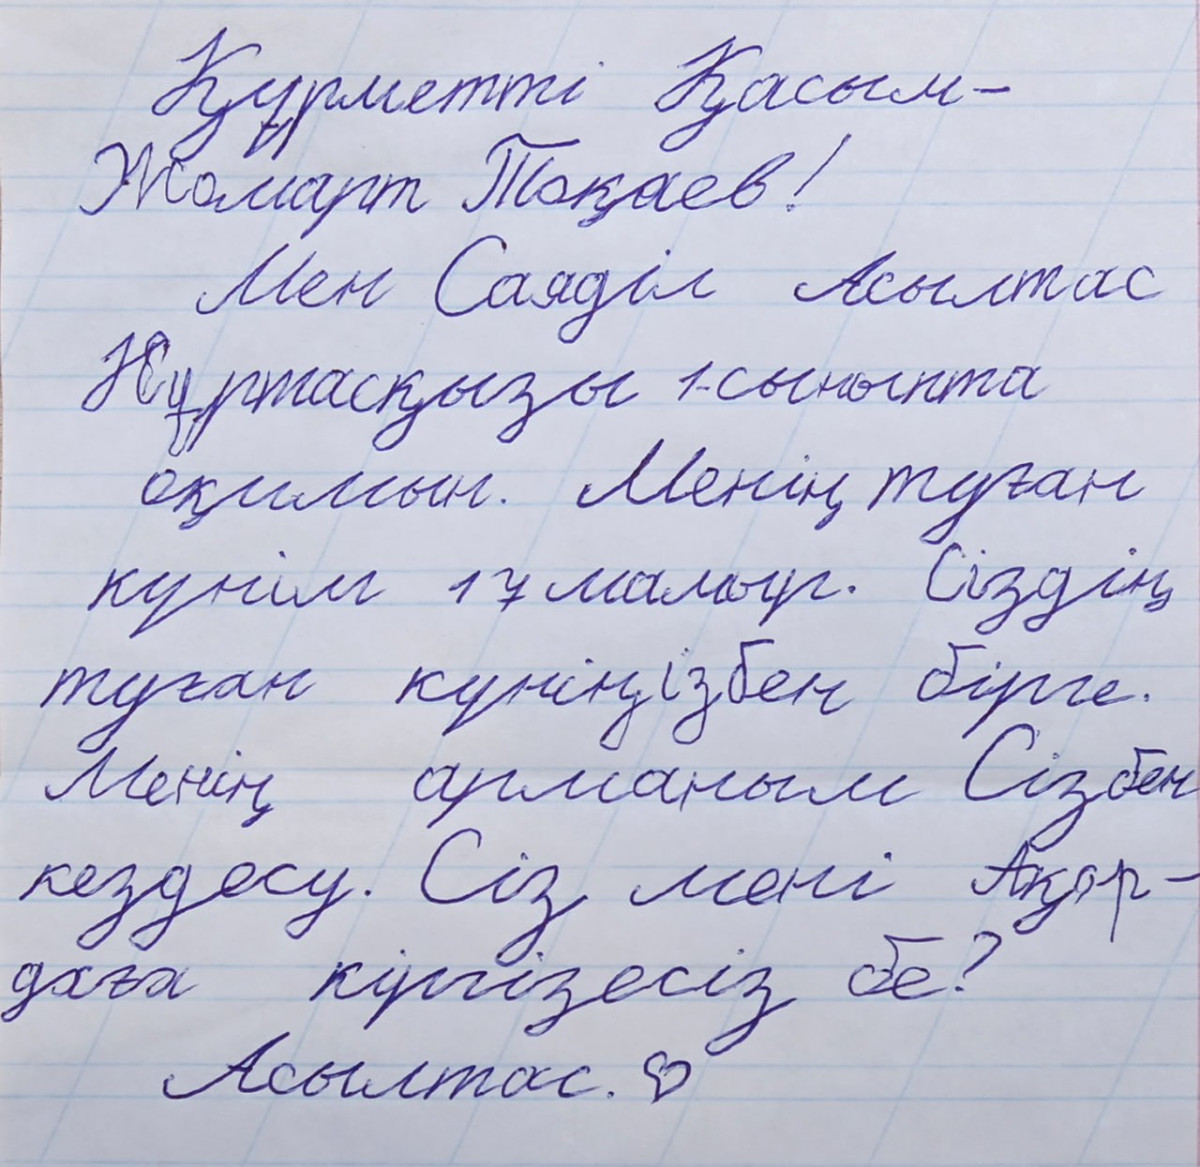 Құрметті Қасым-
Жомарт Тоқаев!
Мен Саяділ Асылтас
Нұртасқызы 1-сыныпта
оқимын. Менің туған
күнім 17 мамыр. Сіздің
туған күніңізбен бірге.
Менің арманым Сізбен
кездесу. Сіз мені Ақор-
даға кіргізесіз бе?
Асылтас. ♡